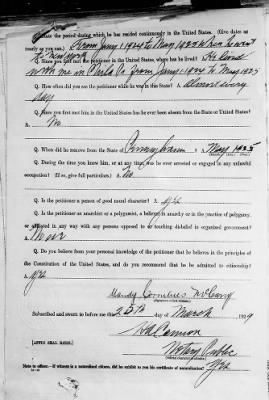 State the period during which he has resided continuously in the United States. (Give dates as
nearly as you can.) From Jany 1 1924 to May 1925 when he went
to New York
Since you first met the petitioner in the United States, where has he lived? He lived
with me in Phila Pa from Jany 1 1924 to May 1925
How often did you see the petitioner while he was in that State? Almost every
day
Have you first met him in the United States has he ever been absent from the State or United States?
No
When did he remove from the State of Pennsylvania ? May 1925
During the time you knew him, or at any time, was he ever arrested or engaged in any unlawful
occupation? (If so, give full particulars.) No
Is the petitioner a person of good moral character? Yes
Is the petitioner an anarchist or polygamist, a believer in anarchy or in the practice of polygamy,
or affiliated in any way with any persons opposed to or teaching disbelief in organized government?
None
Do you believe from your personal knowledge of the petitioner that he believes in the principles
of the Constitution of the United States, and do you recommend that he be admitted to citizenship?
Yes
Subscribed and sworn to before me this 25th
day of March 1929
Cannon
Notary Public
[AFFIX SEAL HERE.]